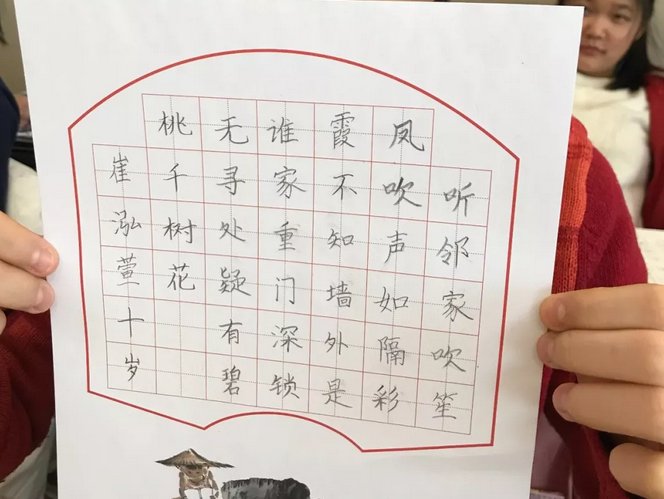 听邻家吹笙
凤吹声如隔彩
霞不知墙外是
谁家重门深锁
无寻处疑有碧
桃千树花
崔泓萱十岁